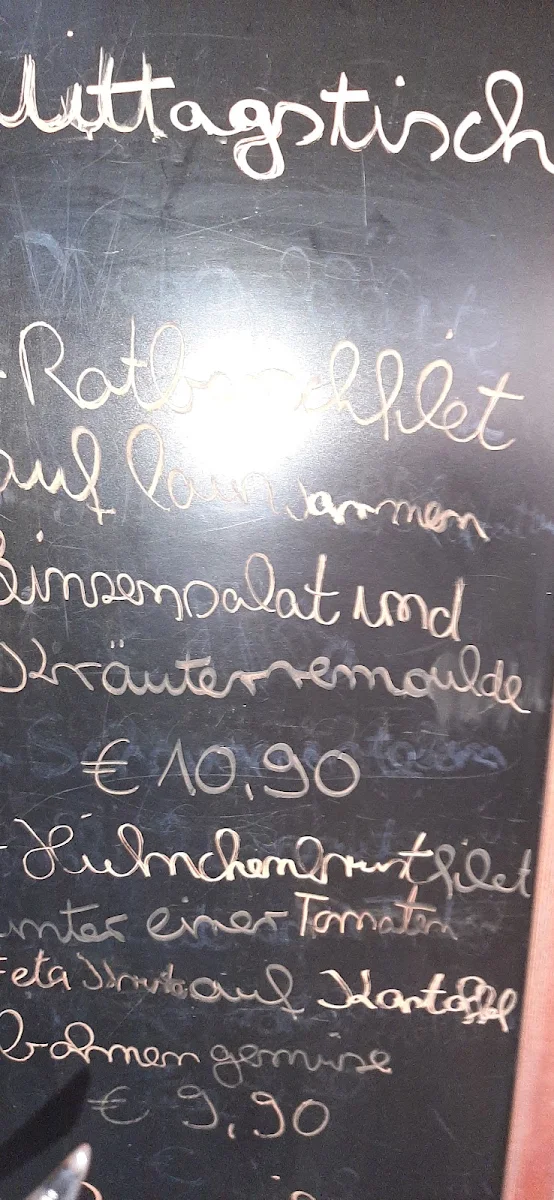 Mittagstisch
- Rotbarschfilet
auf lauwarmen
Linsensalat und
Kräuterremoulde
€ 10,90
- Hühnchenbrustfilet
unter einer Tomaten
Feta Kruste auf Kartoffel
Bohnengemüse
€ 9,90